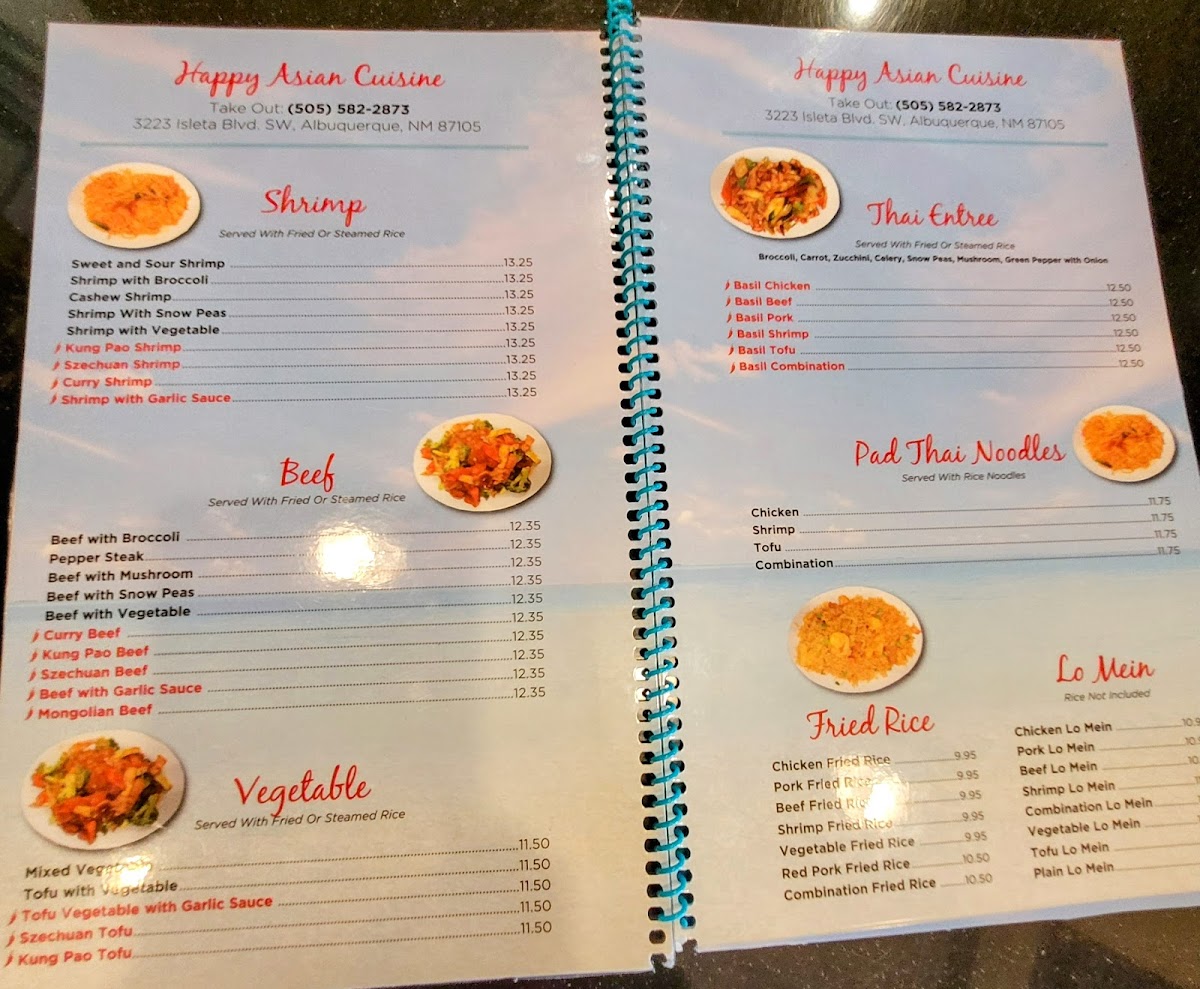 Happy Asian Cuisine
Take Out: (505) 582-2873
3223 Isleta Blvd. SW, Albuquerque, NM 87105
Shrimp
Served With Fried Or Steamed Rice
Sweet and Sour Shrimp 13.25
Shrimp with Broccoli 13.25
Cashew Shrimp 13.25
Shrimp With Snow Peas 13.25
Shrimp with Vegetable 13.25
Kung Pao Shrimp 13.25
Szechuan Shrimp 13.25
Curry Shrimp 13.25
Shrimp with Garlic Sauce 13.25
Beef
Served With Fried Or Steamed Rice
Beef with Broccoli 12.35
Pepper Steak 12.35
Beef with Mushroom 12.35
Beef with Snow Peas 12.35
Beef with Vegetable 12.35
Curry Beef 12.35
Kung Pao Beef 12.35
Szechuan Beef 12.35
Beef with Garlic Sauce 12.35
Mongolian Beef 12.35
Vegetable
Served With Fried Or Steamed Rice
Mixed Vegetable 11.50
Tofu with Vegetable 11.50
Tofu Vegetable with Garlic Sauce 11.50
Szechuan Tofu 11.50
Kung Pao Tofu 11.50
Happy Asian Cuisine
Take Out: (505) 582-2873
3223 Isleta Blvd. SW, Albuquerque, NM 87105
Thai Entree
Served With Fried Or Steamed Rice
Broccoli, Carrot, Zucchini, Celery, Snow Peas, Mushroom, Green Pepper with Onion
Basil Chicken 12.50
Basil Beef 12.50
Basil Pork 12.50
Basil Shrimp 12.50
Basil Tofu 12.50
Basil Combination 12.50
Pad Thai Noodles
Served With Rice Noodles
Chicken 11.75
Shrimp 11.75
Tofu 11.75
Combination 11.75
Fried Rice
Chicken Fried Rice 9.95
Pork Fried Rice 9.95
Beef Fried Rice 9.95
Shrimp Fried Rice 9.95
Vegetable Fried Rice 9.95
Red Pork Fried Rice 10.50
Combination Fried Rice 10.50
Lo Mein
Rice Not Included
Chicken Lo Mein
Pork Lo Mein
Beef Lo Mein
Shrimp Lo Mein
Combination Lo Mein
Vegetable Lo Mein
Tofu Lo Mein
Plain Lo Mein